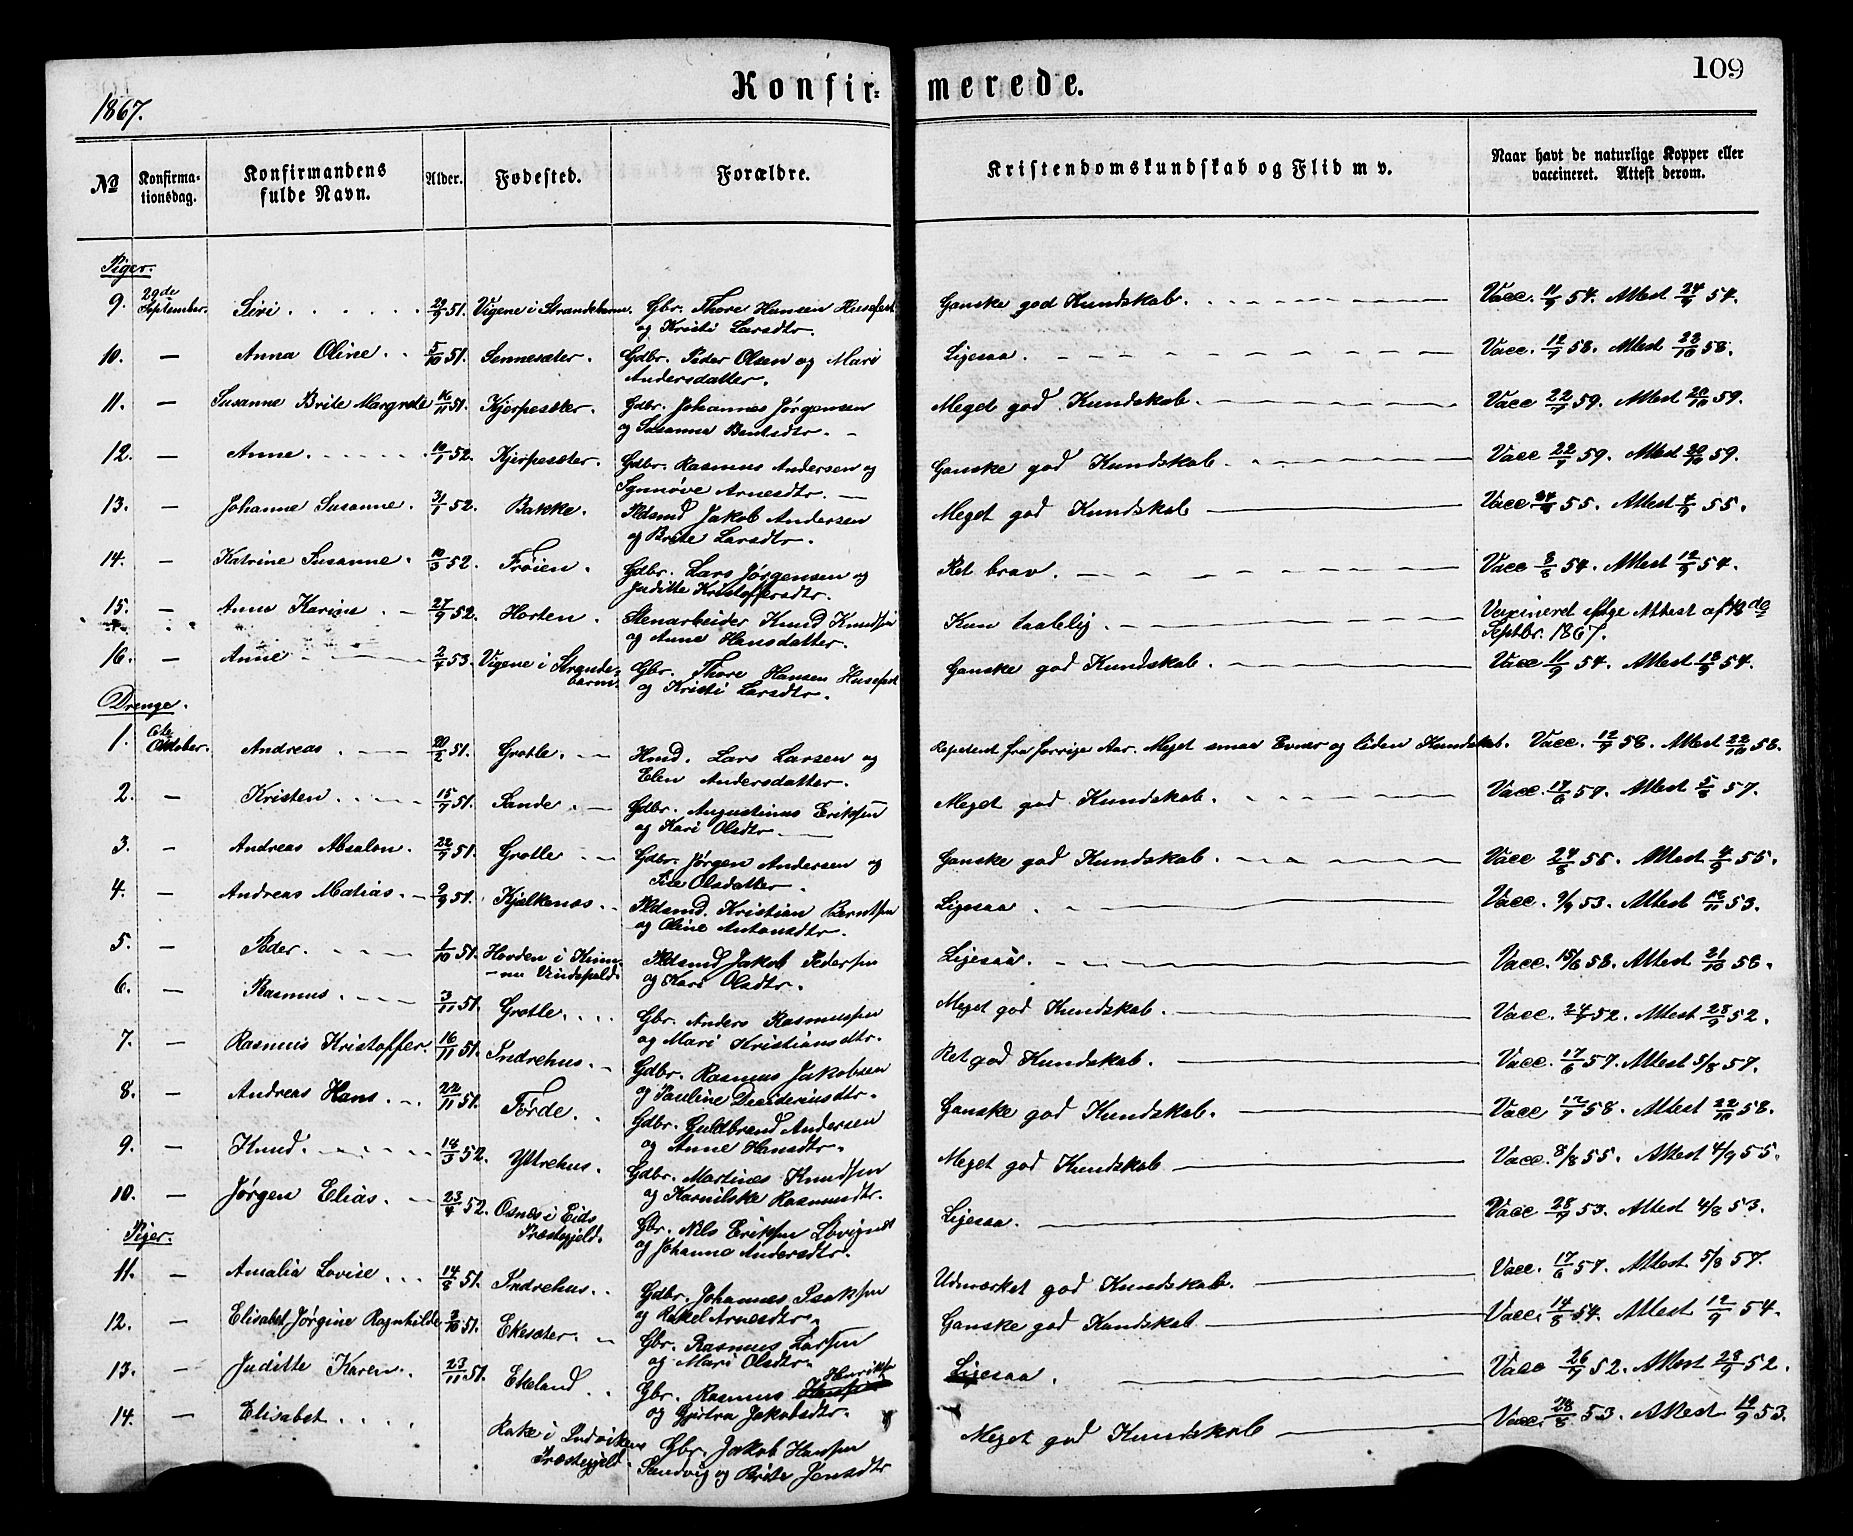 109
1867.
Konfir- merede.
No Konfirmationsdag. Konfirmandens fulde Navn. Alder. Fødested. Forældre. Kristendomskundskab og Flid m v. Naar havt de naturlige Kopper eller vaccineret. Attest derom.
Piger.
9. 29de September. Siri 29/9 51. Vigene i Strandebarm. Gbr. Thore Hansen og Kristi Larsdtr. Ganske god Kundskab. Vacc. 11/9 54. Attest 24/9 54.
10. — Anna Oline. 5/10 51. Sennesæter. Gdbr. Peder Olsen og Mari Andersdatter. Ligesaa. Vacc. 12/9 58. Attest 22/10 58.
11. — Susanne Brite Margrete 16/11 51. Kjerpesæter. Gdbr. Johannes Jørgensen og Susanna Bentsdtr. Meget god Kundskab. Vacc 22/9 59. Attest 20/10 59.
12. — Anne. 10/1 52. Kjerpesæter. Gdbr. Rasmus Andersen og Synnøve Arnesdtr. Ganske god Kundskab. Vacc 22/9 59. Attest 20/10 59.
13. — Johanne Susanne. 31/1 52. Bakke. Pldsmd Jakob Andersen og Brite Larsdtr. Meget god Kundskab Vacc 24/8 55. Attest 4/9 55.
14. — Katrine Susanne. 10/3 52. Frøien. Gdbr. Lars Jørgensen og Juditte Kristoffersdtr. Ret brav. Vacc 8/8 54. Attest 12/9 54.
15. — Anna Karine 27/9 52. Horten. Stenarbeider Knud Knudsen og Anne Hansdatter. Kun taalelig. Vaccineret ifølge Attest af 18de Septbr. 1867.
16. — Anne 2/7 53. Vigene i Strandebarm. Gbr. Thore Hansen og Kristi Larsdtr. Ganske god Kundskab. Vacc 11/9 54. Attest 18/9 54.
Drenge.
1. 6te Oktober. Andreas. 20/2 51. Grotle. Hmd. Lars Larsen og Elen Andersdatter. Repetent fra forrige Aar. Meget smaa Evner og liden Kundskab. Vacc. 12/9 58. Attest 22/10 58.
2. — Kristen. 15/7 51. Sande. Gdbr. Augustinus Eriksen og Kari Olsdtr. Meget god Kundskab. Vacc. 17/6 57. Attest 5/8 57.
3. — Andreas Absalon. 22/7 51. Grotle Gdbr. Jørgen Andersen og Olsdatter. Ganske god Kundskab. Vacc 24/8 55. Attest 4/9 55.
4. — Andreas Matias. 2/9 51. Kjelkenæs. Pldsmd. Kristian Berntsen og Oline Antonsdtr. Ligesaa. Vacc. 9/9 53. Attest 18/11 53.
5. — Peder. 1/10 51. Hovden i Kinn Præstegjeld. Pldsmd Jakob Pedersen og Kari Olsdtr. Ligesaa. Vacc. 15/6 58. Attest 21/10 58.
6. — Rasmus. 3/11 51. Grotle. Gbr. Anders Rasmussen og Mari Kristiansdtr. Meget god Kundskab. Vacc. 24/9 52. Attest 28/9 52.
7. — Rasmus Kristoffer. 16/11 51. Indrehus. Gdbr. Rasmus Jakobsen og Pauline Desideriusdtr. Ret god Kundskab. Vacc. 17/6 57. Attest 5/8 57.
8. — Andreas Hans. 22/11 51. Førde. Gdbr. Guldbrand Andersen og Anne Hansdtr. Ganske god Kundskab. Vacc 12/9 58. Attest 22/10 58.
9. — Knud. 18/3 52. Yttrehus. Gdbr. Martines Knudsen og Karnilske Rasmusdtr. Meget god Kundskab Vacc. 8/8 55. Attest 4/9 55.
10. — Jørgen Elias. 23/4 52. Osnes i Eids Præstegjeld. Gbr. Nils Eriksen og Johanna Andersdtr. Ligesaa. Vacc 28/7 53. Attest 4/8 53.
Piger.
11. — Amalia Lovise 14/8 51. Indrehus. Gdbr. Johannes Isaksen og Rakel Arnesdtr. Udmærket god Kundskab. Vacc. 17/6 57. Attest 5/8 57.
12. — Elisabet Jørgine Ragnhilde 3/10 51. Ekesæter. Gbr. Rasmus Larsen og Mari Olsdtr. Ganske god Kundskab Vacc. 14/8 54. Attest 12/9 54.
13. — Juditte Karen. 23/11 51. Ekeland. Gbr. Rasmus Henriksen og Gjertra Jakobsdtr. Ligesaa. Vacc 26/9 52. Attest 28/9 52.
14. — Elisabet Rake i Indvikens Præstegjeld. Gbr. Jakob Hansen Sandvig og Brite Jensdtr Meget god Kundskab Vacc. 28/8 53. Attest 12/9 53.